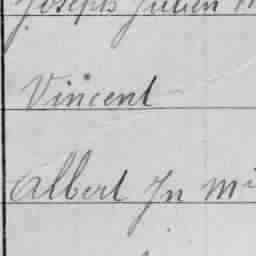 Joseph Julien
Vincent
Albert Jn Mi